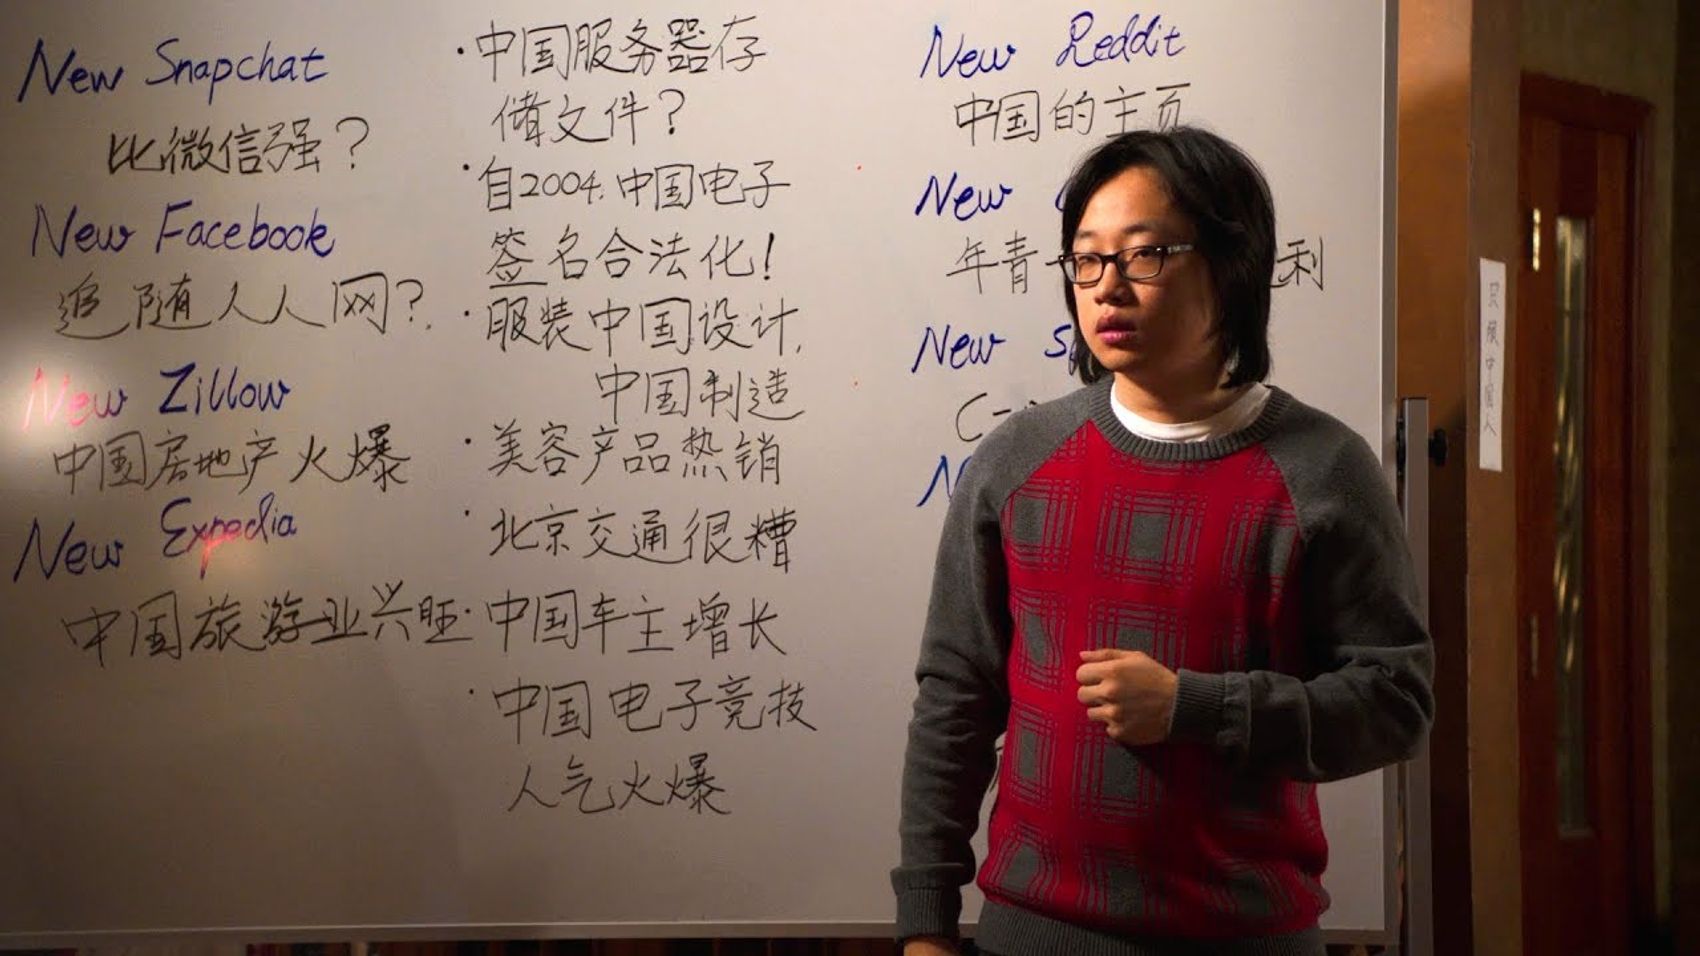 New Snapchat
比微信强?
New Facebook
追随人人网?
New Zillow
中国房地产火爆
New Expedia
中国旅游业兴旺
·中国服务器存
储文件?
·自2004.中国电子
签名合法化!
·服装中国设计,
中国制造
·美容产品热销
·北京交通很糟
·中国车主增长
·中国电子竞技
人气火爆
New Reddit
中国的主页
New
年青
利
New
C-